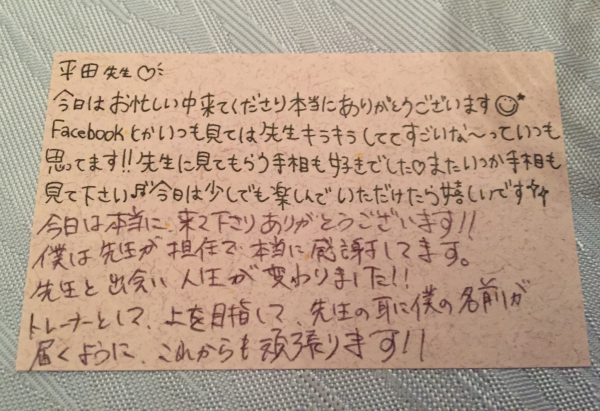 平田先生♡
今日はお忙しい中来てくださり本当にありがとうございます☺
Facebookとかいつも見ては先生キラキラしててすごいな〜っていつも
思ってます!!先生に見てもらう手相も好きでした♡またいつか手相も
見て下さい♪今日は少しでも楽しんでいただけたら嬉しいです
今日は本当に来て下さりありがとうございます!!
僕は先生が担任で本当に感謝してます。
先生と出会い人生が変わりました!!
トレーナーとして、上を目指して、先生の耳に僕の名前が
届くように、これからも頑張ります!!